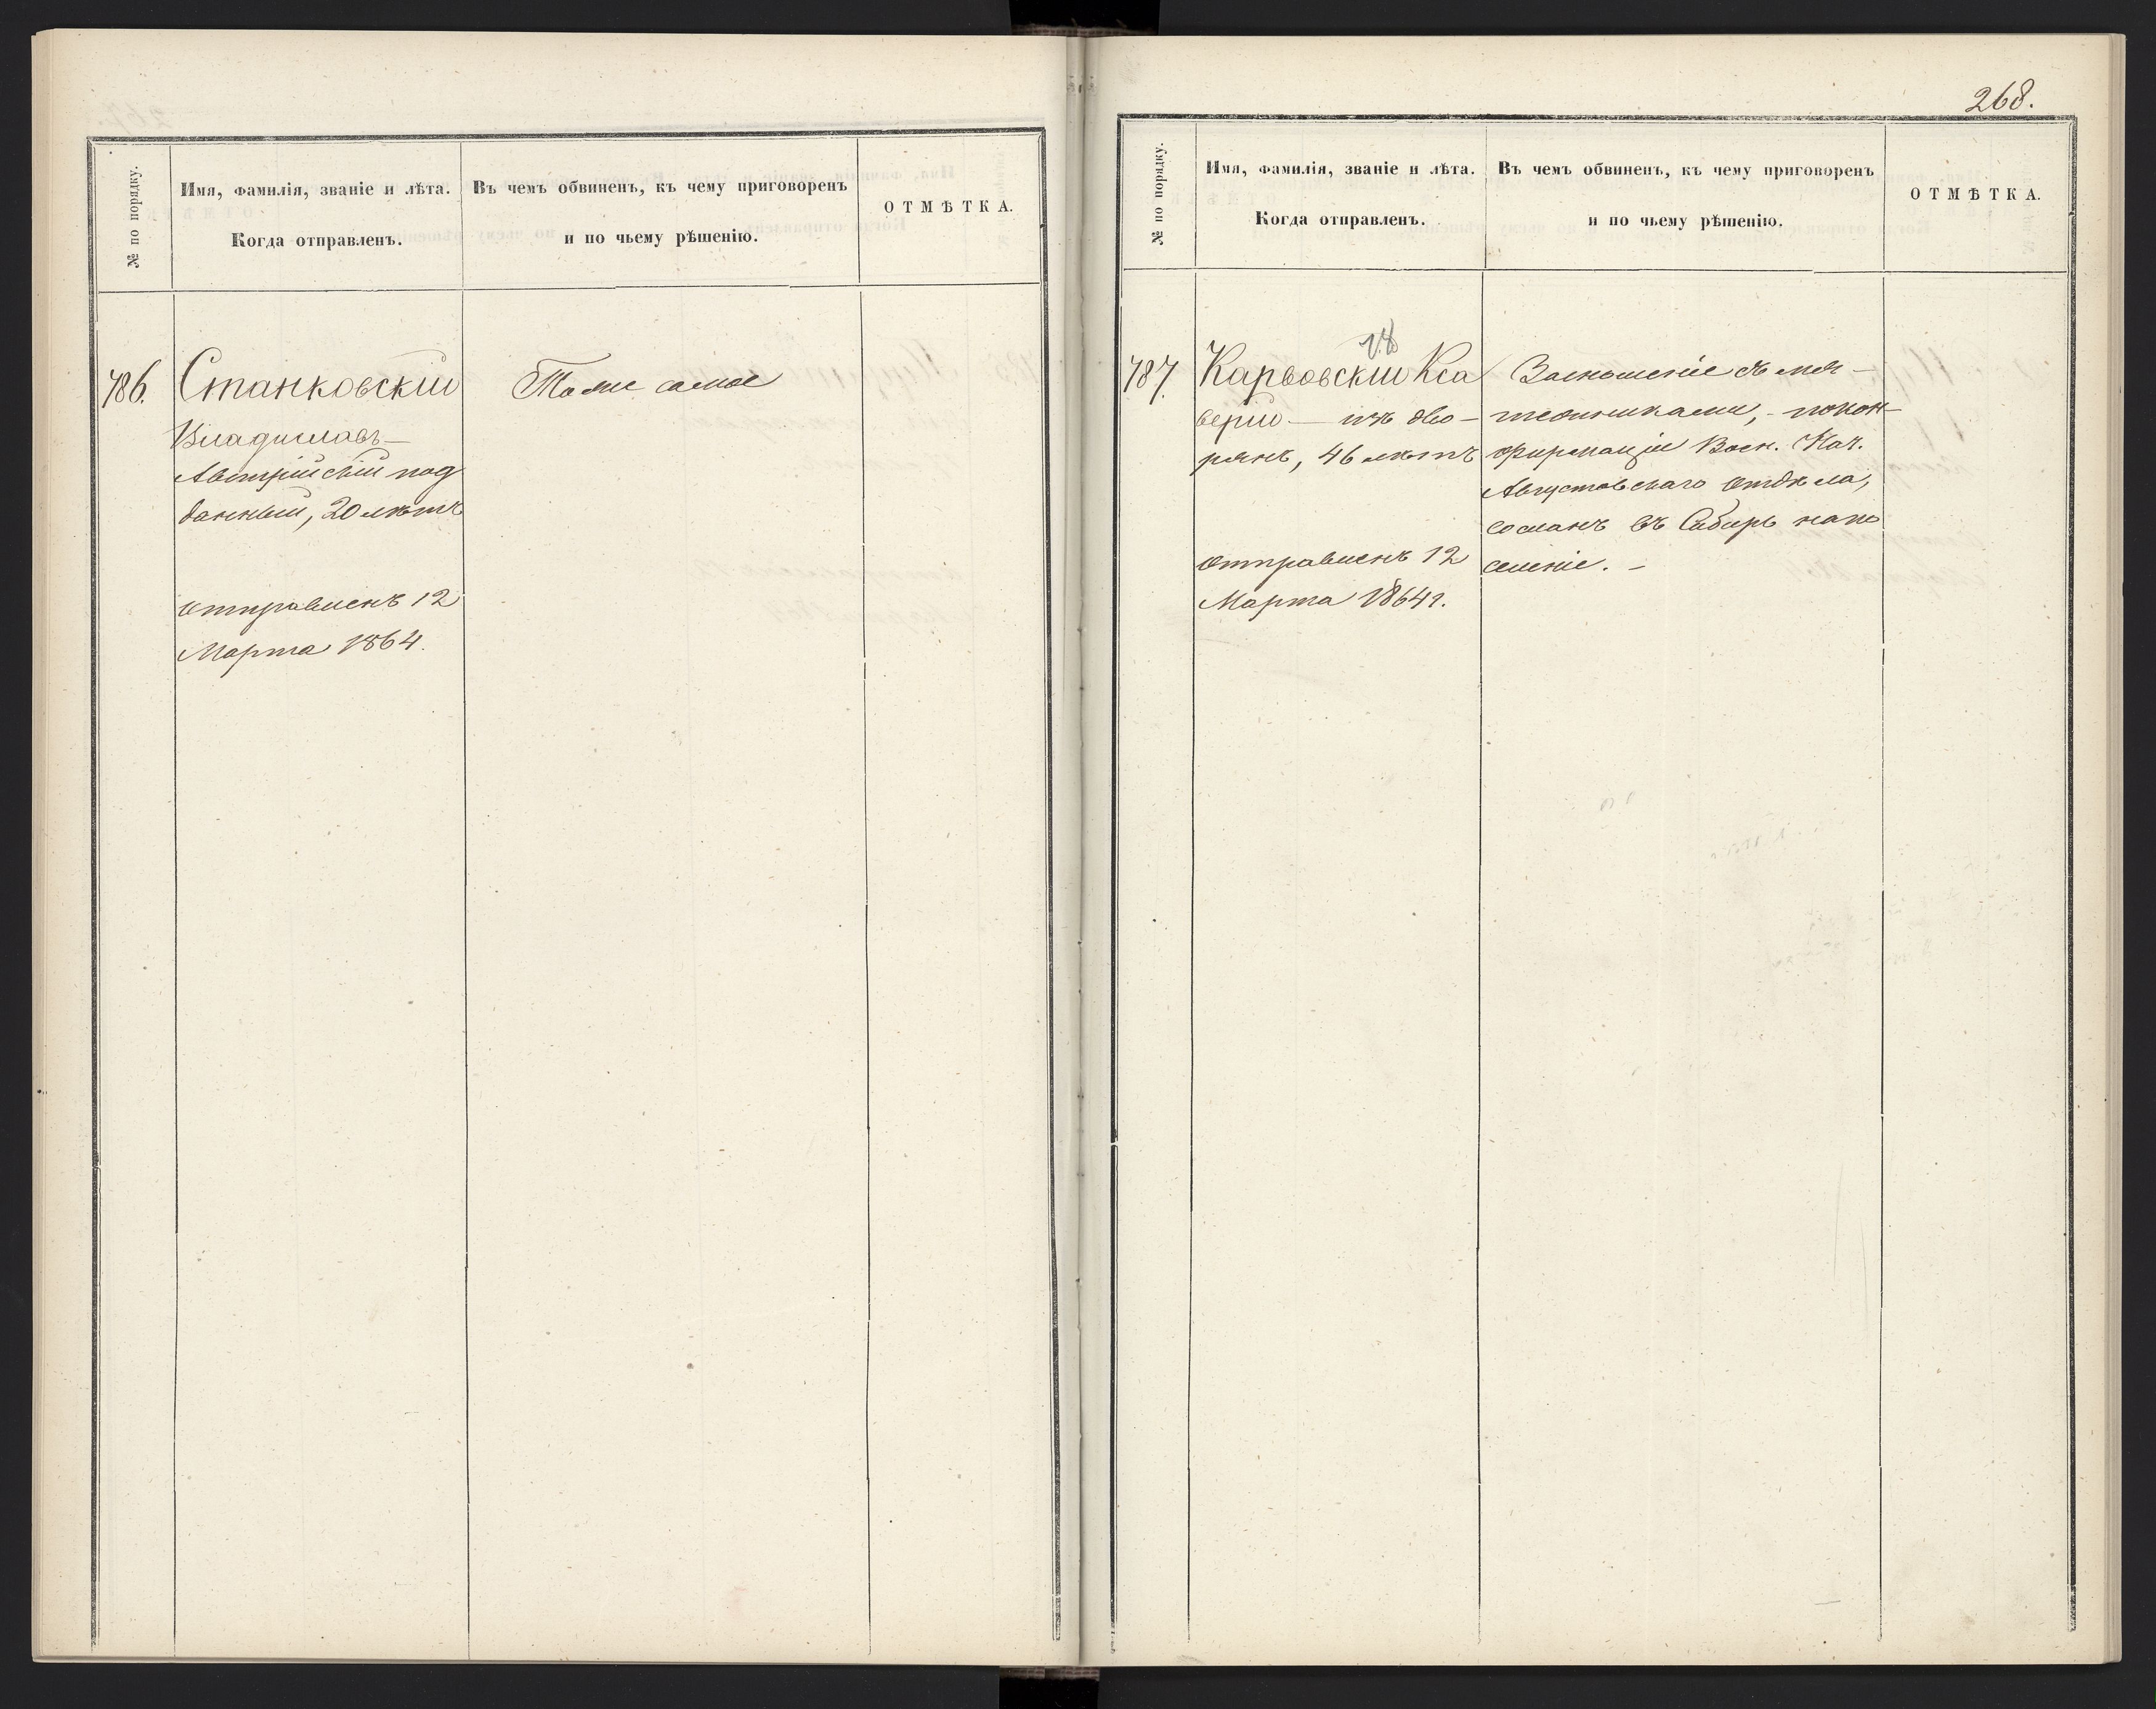 № по порядку.
Имя, фамилія, званіе и лѣта.
Когда отправленъ.
Въ чемъ обвиненъ, къ чему приговоренъ
и по чьему рѣшенію.
ОТМѢТКА.
786.
Станковскій
Владиславъ—
Австрійскій под
данный, 20 лѣтъ
отправленъ 12
Марта 1864.
Тоже самое
268.
№ по порядку.
Имя, фамилія, званіе и лѣта.
Когда отправленъ.
Въ чемъ обвиненъ, къ чему приговоренъ
и по чьему рѣшенію.
ОТМѢТКА.
787.
Карвовскій Кса
верій — изъ дво-
рянъ, 46 лѣтъ
отправленъ 12
Марта 1864 г.
За сношеніе съ мя-
тежниками, - по кон-
фирмаціи Воен. Нач.
Августовскаго отдѣла,
сосланъ въ Сибирь на по
селеніе. -